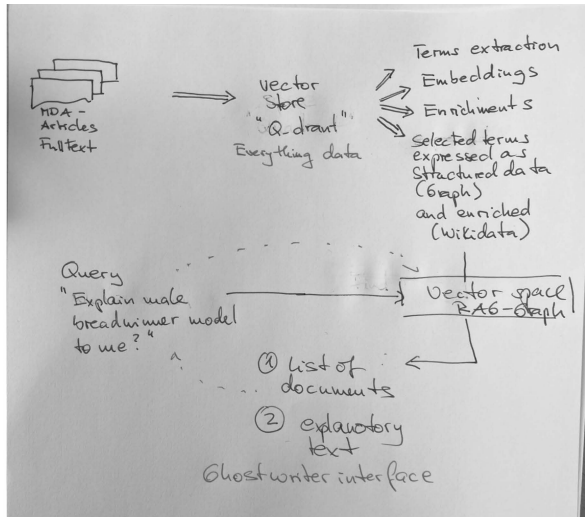 MDA -
Articles
Fulltext
Vector
Store
"Q-drant"
Everything data
Terms extraction
Embeddings
Enrichments
Selected terms
expressed as
structured data
(Graph)
and enriched
(Wikidata)
Query
"Explain male
breadwinner model
to me?"
Vector space
RAG-Graph
① list of
documents
② explanatory
text
Ghostwriter interface